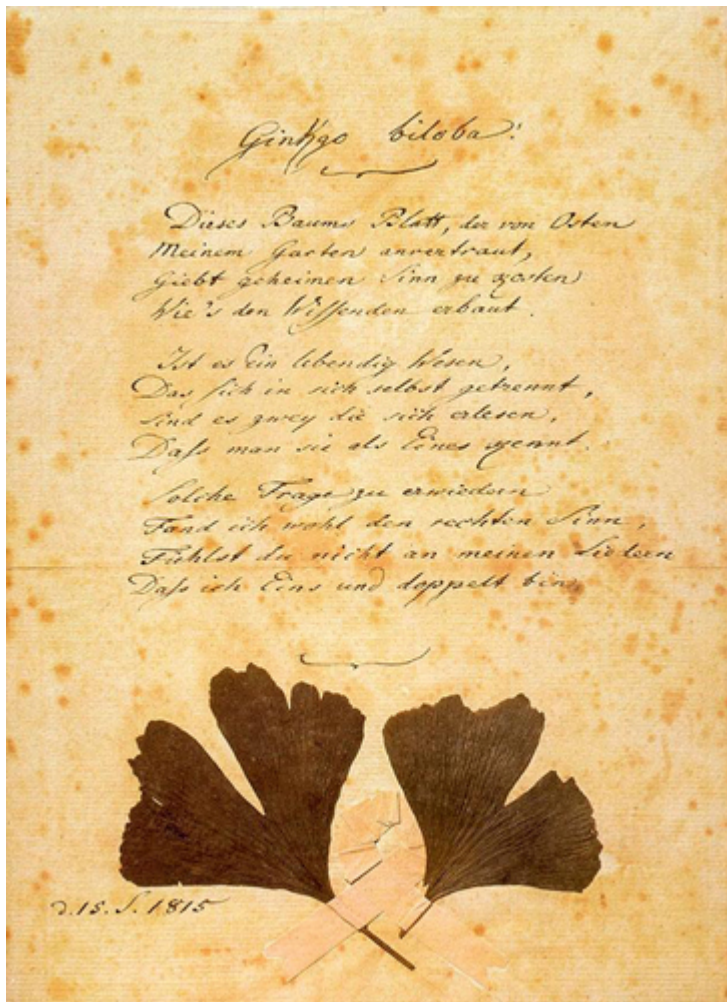 Ginkgo biloba.
Dieses Baums Blatt, der von Osten
Meinem Garten anvertraut,
Giebt geheimen Sinn zu kosten
Wie's den Wissenden erbaut.
Ist es Ein lebendig Wesen,
Das sich in sich selbst getrennt,
Sind es zwey die sich erlesen,
Dass man sie als Eines kennt.
Solche Frage zu erwiedern
Fand ich wohl den rechten Sinn,
Fühlst du nicht an meinen Liedern
Dass ich Eins und doppelt bin,
d. 15. S. 1815